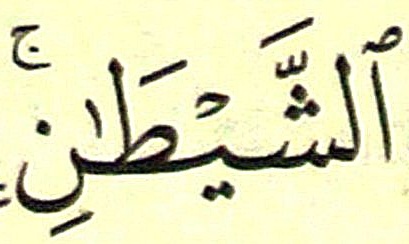 ٱلشَّيْطَـٰنِۚ